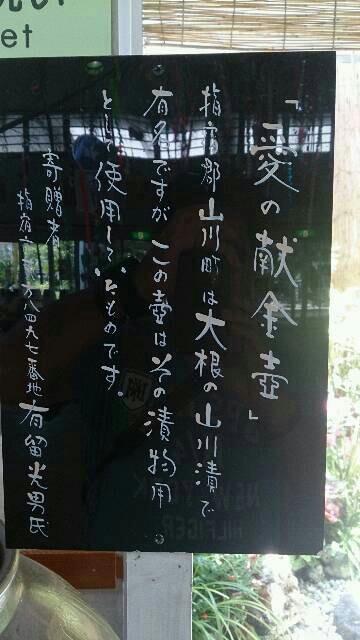 「愛の献金壺」
指宿郡山川町は大根の山川漬で
有名ですがこの壺はその漬物用
として使用していたものです。
寄贈者
八四九七番地 有留光男氏
et